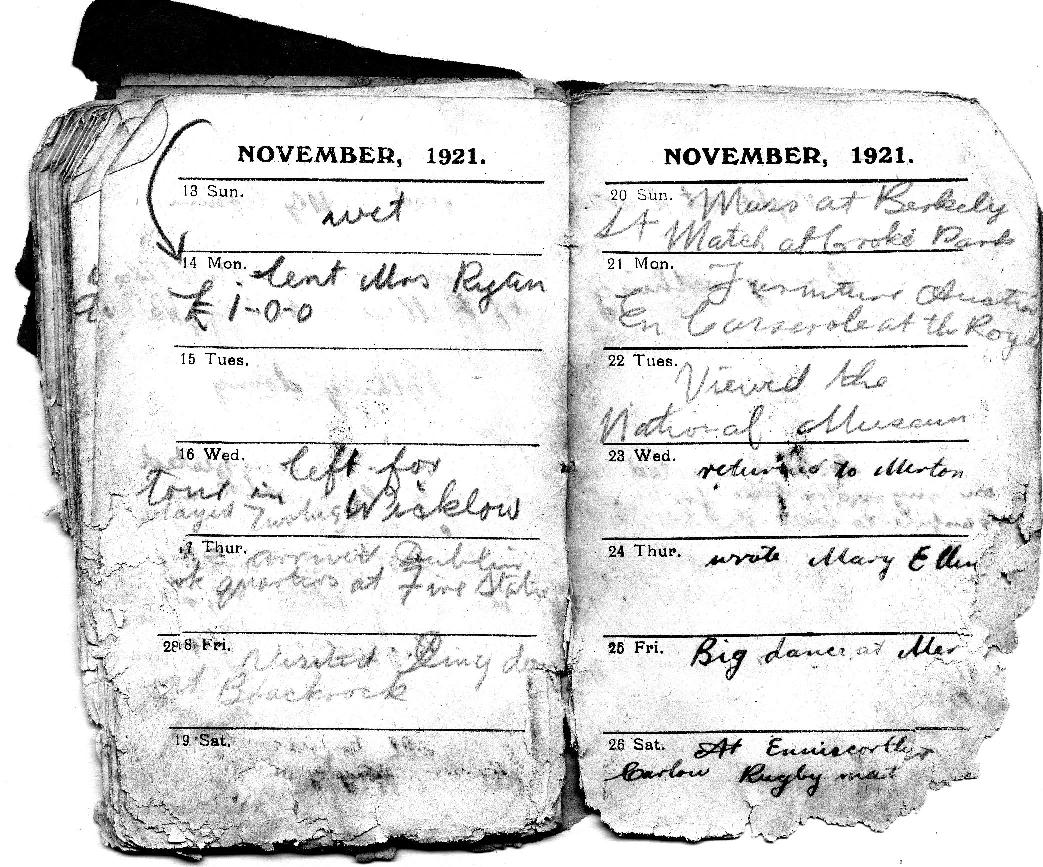 NOVEMBER, 1921.
13 Sun.
wet
14 Mon. lent Mrs Ryan
£ 1-0-0
15 Tues.
16 Wed. left for
tour in Wicklow
stayed
17 Thur. arrived Dublin
quarters at Fire Station
Fri. Visited
at Blackrock
19 Sat.
NOVEMBER, 1921.
20 Sun. Mass at Berkely
St Match at Croke Park
21 Mon. Furniture Auction
En Casserole at th Royal
22 Tues. Viewed the
National Museum
23 Wed. returned to Merton
24 Thur. wrote Mary Ellen
25 Fri. Big dance at Mer
26 Sat. At Enniscorthy
Carlow Rugby mat